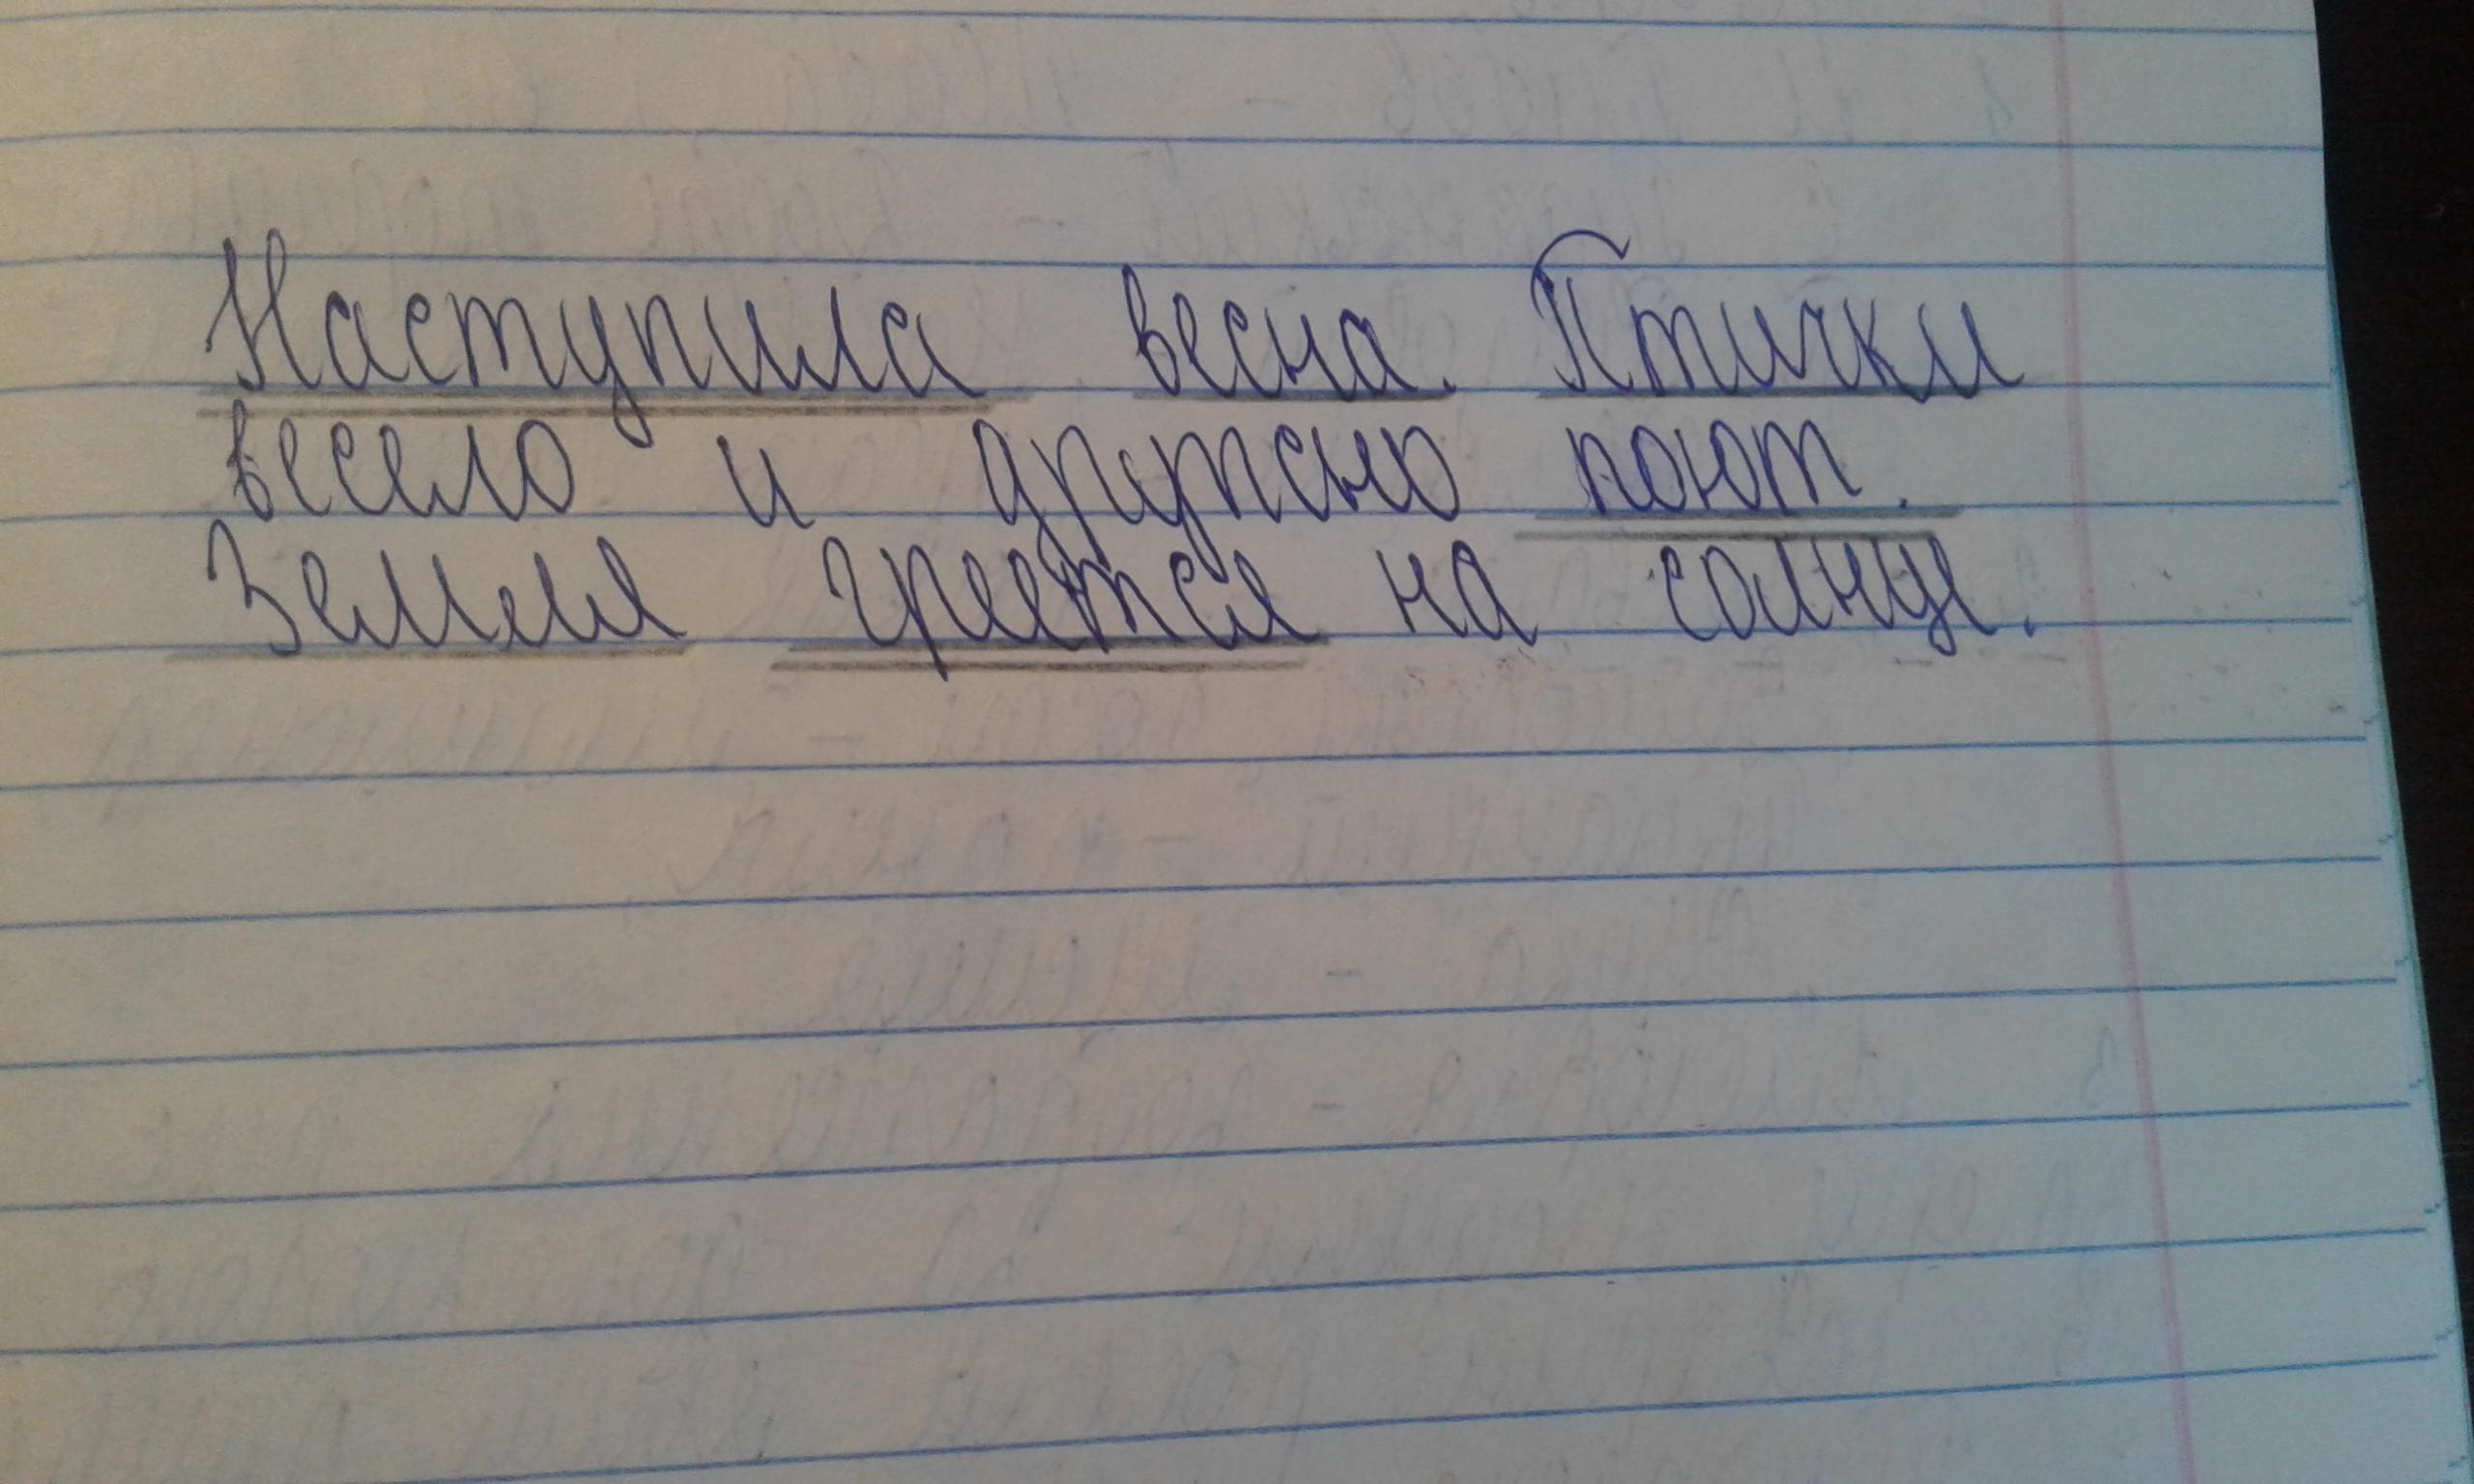 Наступила весна. Птички
весело и дружно поют.
Земля греется на солнце.